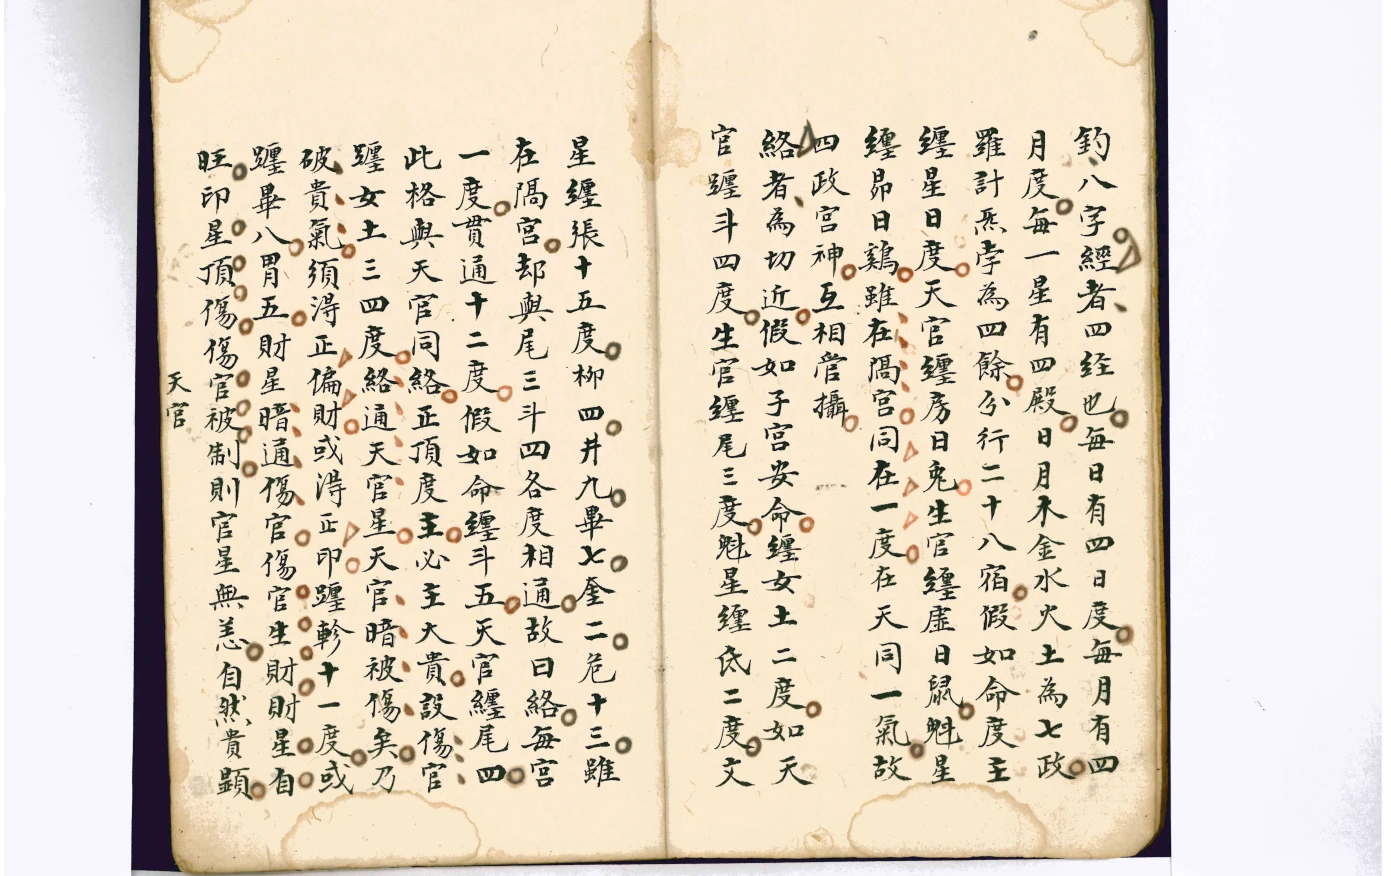 釣八字經者四经也每日有四日度每月有四
月度每一星有四殿日月木金水火土為七政
羅計炁孛為四餘分行二十八宿假如命度主
纏星日度天官纏房日兎生官纏虛日鼠魁星
纏昴日鷄雖在隔宮同在一度在天同一氣故
四政宮神互相管攝
絡者為切近假如子宮安命纏女土二度如天
官躔斗四度生官纏尾三度魁星纏氐二度文
星纏張十五度柳四井九畢七奎二危十三雖
在隔宮却與尾三斗四各度相通故曰絡每宮
一度貫通十二度假如命纏斗五天官纏尾四
此格與天官同絡正頂度主必主大貴設傷官
躔女土三四度絡通天官星天官暗被傷矣乃
破貴氣須淂正偏財或淂正印躔軫十一度或
躔畢八胃五財星暗通傷官傷官生財財星自
旺印星頂傷傷官被制則官星無恙自然貴顯
天官